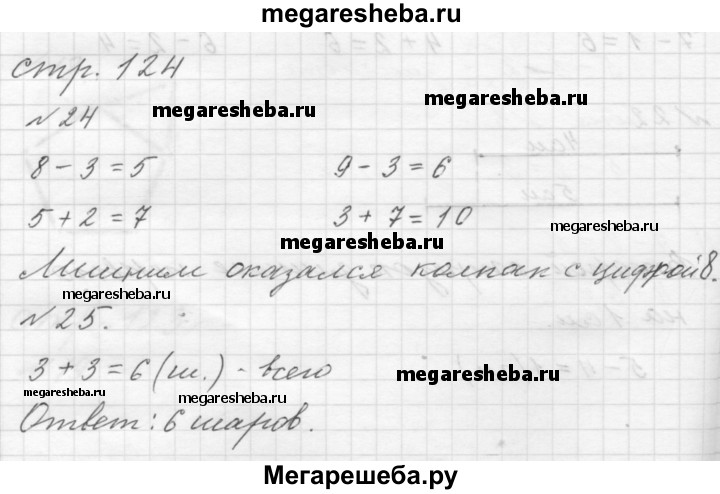 megaresheba.ru
стр. 124
№24 megaresheba.ru megaresheba.ru
8 - 3 = 5 9 - 3 = 6
5 + 2 = 7 3 + 7 = 10
megaresheba.ru megaresheba.ru
Лишним оказался колпак с цифрой 8.
megaresheba.ru
№25.
3 + 3 = 6 (ш.) - всего
megaresheba.ru megaresheba.ru
Ответ: 6 шаров. megaresheba.ru
Мегарешеба.ру